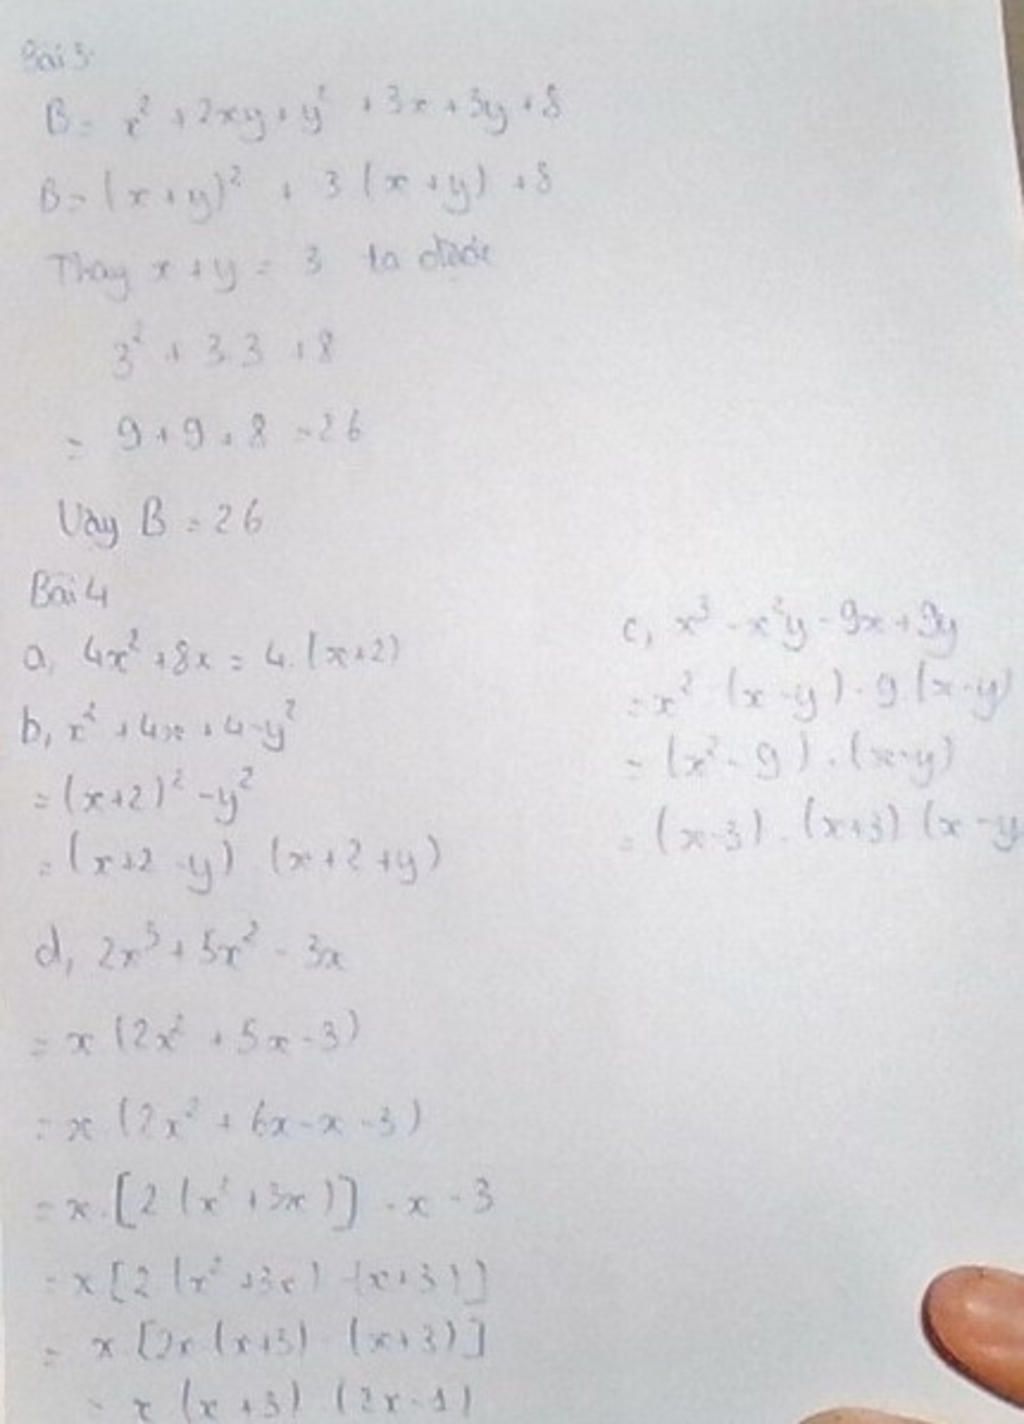 Bài 3
B = x² + 2xy + y² + 3x + 3y + 8
B = (x + y)² + 3 (x + y) + 8
Thay x + y = 3 ta được
3² + 3.3 + 8
= 9 + 9 + 8 = 26
Vậy B = 26
Bài 4
a, 4x² + 8x = 4.(x+2)
b, x² + 4x + 4 - y²
= (x+2)² - y²
= (x+2 - y) . (x + 2 + y)
c, x³ - x²y - 9x + 9y
= x² (x - y) - 9.(x - y)
= (x² - 9) . (x - y)
= (x - 3) . (x+3) (x - y
d, 2x³ + 5x² - 3x
= x (2x² + 5x - 3)
= x (2x² + 6x - x - 3)
= x.[2 (x² + 3x)] - x - 3
= x [2 (x² + 3x) - (x + 3)]
= x [2x (x+3) - (x + 3)]
= x (x + 3) (2x - 1)